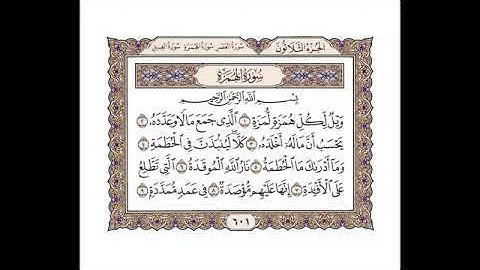 الجُزْءُ الثَّلَاثُونَ سُورَةُ العَصْرِ سُورَةُ الهُمَزَةِ سُورَةُ الفِيلِ
سُورَةُ الهُمَزَةِ
بِسْمِ ٱللَّهِ ٱلرَّحْمَٰنِ ٱلرَّحِيمِ
وَيْلٌ لِّكُلِّ هُمَزَةٍ لُّمَزَةٍ ١ ٱلَّذِى جَمَعَ مَالًا وَعَدَّدَهُۥ ٢
يَحْسَبُ أَنَّ مَالَهُۥٓ أَخْلَدَهُۥ ٣ كَلَّا لَيُنۢبَذَنَّ فِى ٱلْحُطَمَةِ ٤
وَمَآ أَدْرَىٰكَ مَا ٱلْحُطَمَةُ ٥ نَارُ ٱللَّهِ ٱلْمُوقَدَةُ ٦ ٱلَّتِى تَطَّلِعُ
عَلَى ٱلْأَفْـِٔدَةِ ٧ إِنَّهَا عَلَيْهِم مُّؤْصَدَةٌ ٨ فِى عَمَدٍ مُّمَدَّدَةٍۭ ٩
٦٠١